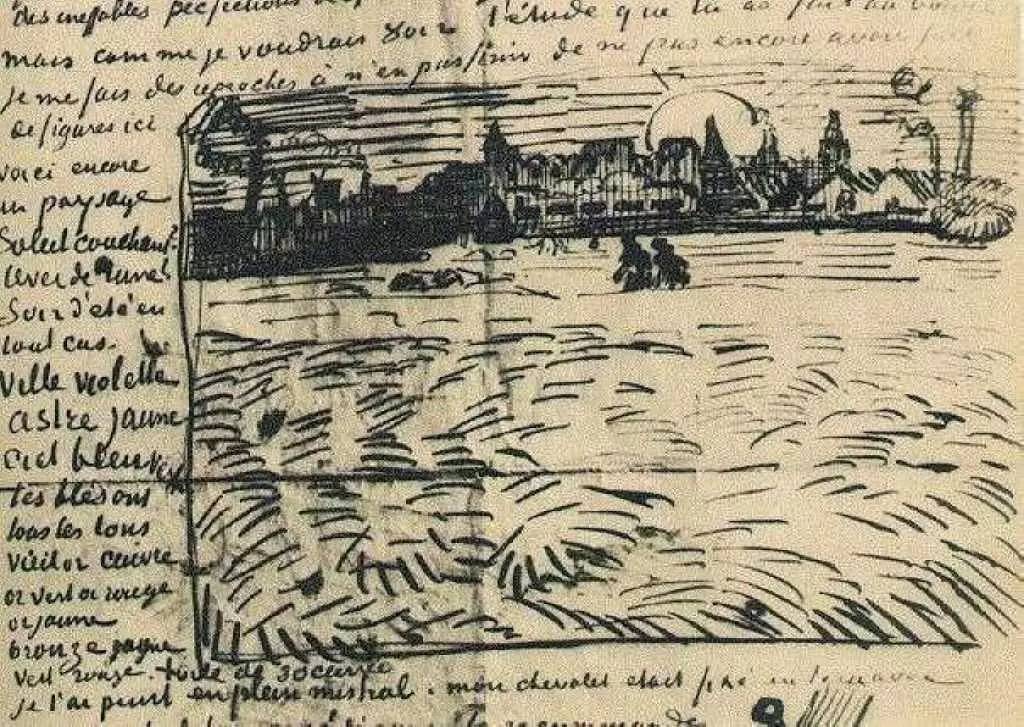 des ineffables perfections l'étude que tu as fait au
mais comme je voudrais voir
je me fais des reproches à n'en pas finir de ne pas encore avoir fait
de figures ici
voici encore
un paysage
Soleil couchant?
lever de lune?
Soir d'été en
tout cas.
Ville violette
astre jaune
ciel bleu vert
les blés ont
tous les tons
vieil or cuivre
or vert or rouge
or jaune
bronze jaune
vert rouge. toile de 30 carrée
je l'ai peint en plein mistral. mon chevalet etait fixé en terre avec